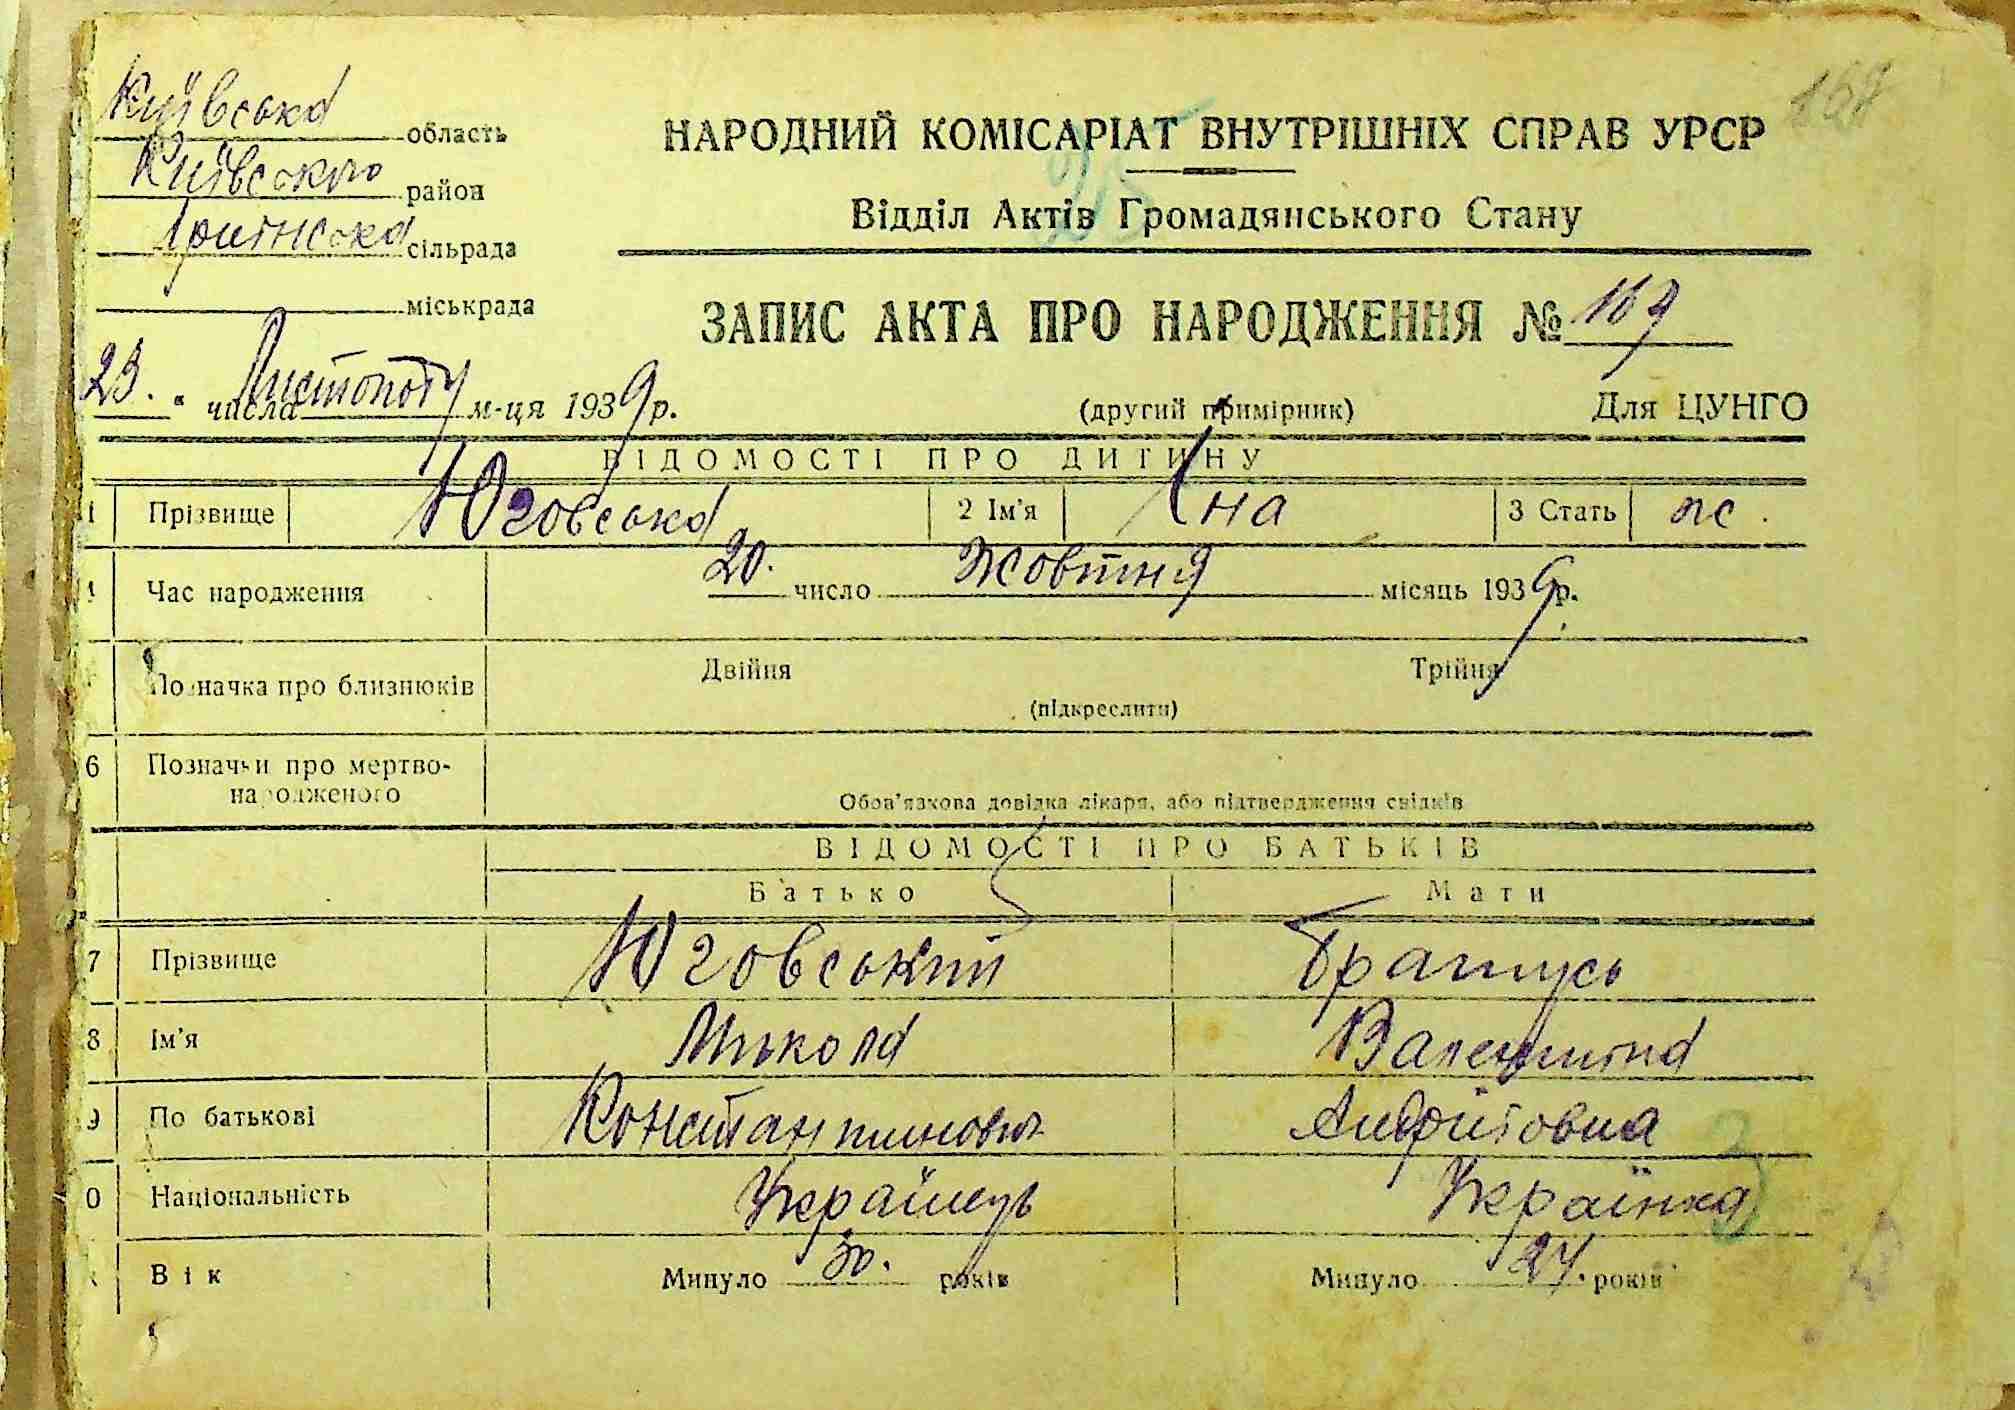 Київська область
Київського район
Ірпінська сільрада
міськрада
НАРОДНИЙ КОМІСАРІАТ ВНУТРІШНІХ СПРАВ УРСР
Відділ Актів Громадянського Стану
ЗАПИС АКТА ПРО НАРОДЖЕННЯ № 169
23. " числа Листопоту м-ця 1939 р.
(другий примірник) Для ЦУНГО
ВІДОМОСТІ ПРО ДИТИНУ
1 Прізвище Юговська 2 Ім'я Інa 3 Стать ж.
4 Час народження 20. число Жовтня місяць 1939 р.
Позначка про близнюків Двійня Трійня
(підкреслити)
6 Позначки про мертвонародженого
Обов'язкова довідка лікаря, або підтвердження свідків
ВІДОМОСТІ ПРО БАТЬКІВ
Батько Мати
7 Прізвище Юговський Братусь
8 Ім'я Микола Валентина
9 По батькові Константинович Андріївна
0 Національність Українець Українка
Вік Минуло 30. років Минуло 24. років